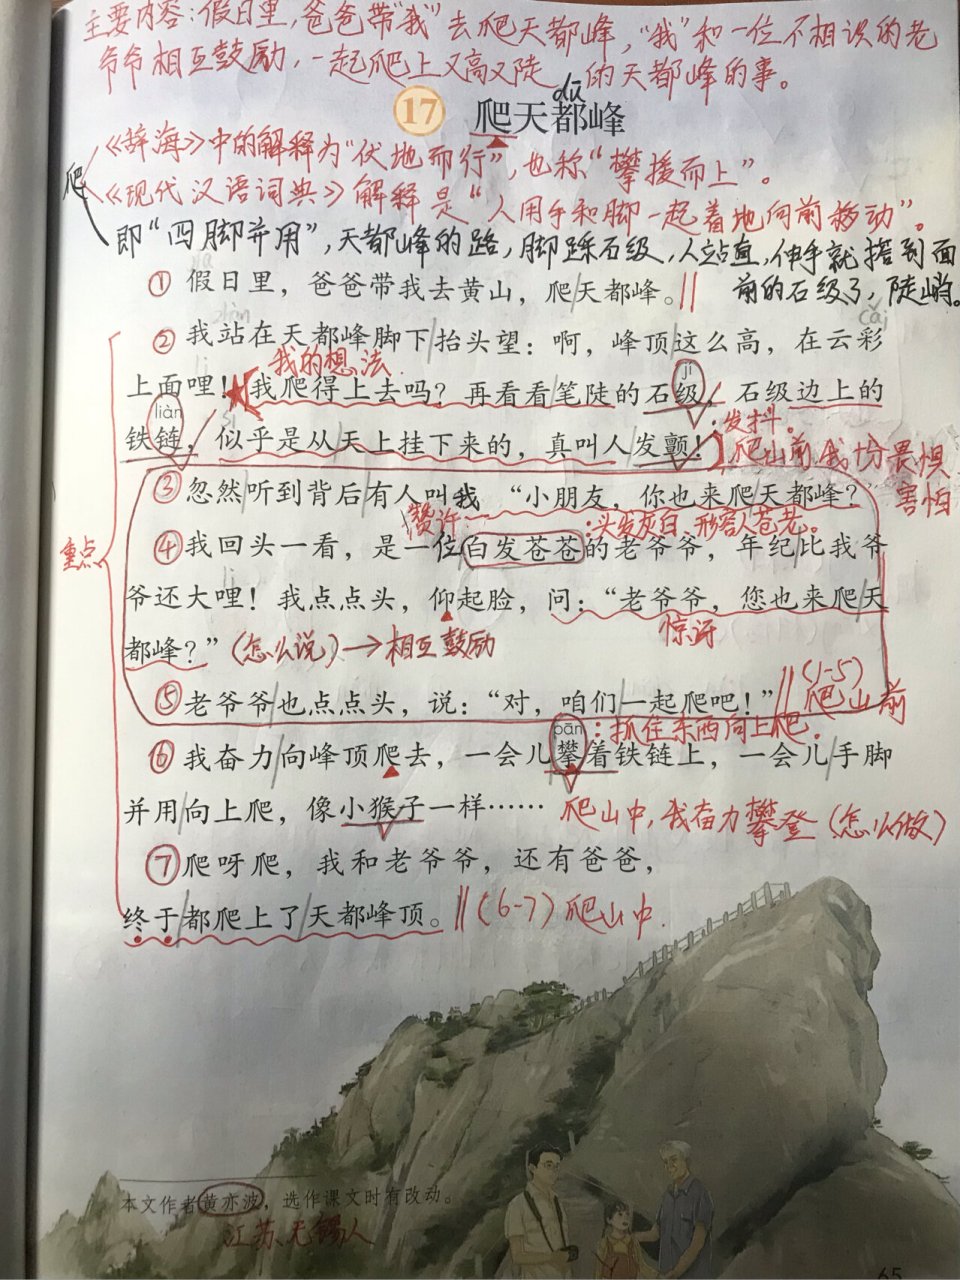 主要内容:假日里,爸爸带“我”去爬天都峰,“我”和一位不相识的老
爷爷相互鼓励,一起爬上又高又陡 的天都峰的事。
dū
17 爬天都峰
《辞海》中的解释为“伏地而行”,也称“攀援而上”。
爬
《现代汉语词典》解释是“人用手和脚一起着地向前移动”。
即“四脚并用”,天都峰的路,脚踩石级,人站直,伸手就摸到面
前的石级了,陡峭。
① 假日里,爸爸带我去黄山,爬天都峰。
cǎi
② 我站在天都峰脚下抬头望:啊,峰顶这么高,在云彩
我的想法
jí
上面哩!我爬得上去吗?再看看笔陡的石级,石级边上的
liàn
sì
:发抖。
铁链,似乎是从天上挂下来的,真叫人发颤!
爬山前,我份畏惧
害怕
③ 忽然听到背后有人叫我 “小朋友,你也来爬天都峰?”
赞许
:头发灰白,形容人苍老。
重点
④ 我回头一看,是一位白发苍苍的老爷爷,年纪比我爷
爷还大哩!我点点头,仰起脸,问:“老爷爷,您也来爬天
惊讶
都峰?”(怎么说)→相互鼓励
⑤ 老爷爷也点点头,说:“对,咱们一起爬吧!”
(1-5)
爬山前
pān
:抓住东西向上爬。
⑥ 我奋力向峰顶爬去,一会儿攀着铁链上,一会儿手脚
并用向上爬,像小猴子一样……
爬山中,我奋力攀登(怎么做)
⑦ 爬呀爬,我和老爷爷,还有爸爸,
终于都爬上了天都峰顶。
(6-7)爬山中.
本文作者黄亦波,选作课文时有改动。
江苏、无锡人
65